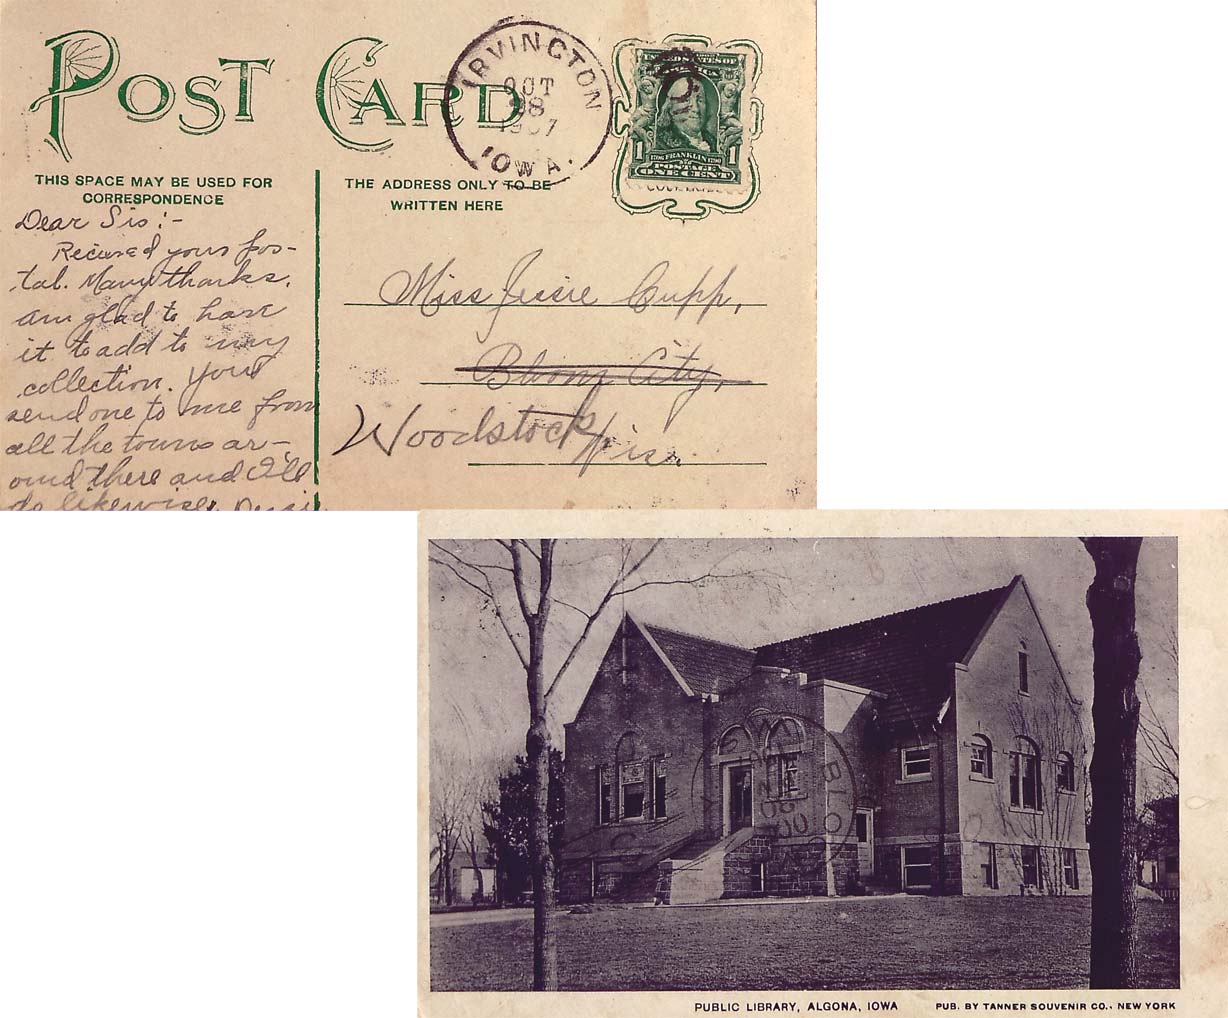 POST CARD
IRVINGTON
OCT
28
1907
IOWA.
UNITED STATES OF
AMERICA
1706 FRANKLIN 1790
1 POSTAGE 1
ONE CENT
THIS SPACE MAY BE USED FOR
CORRESPONDENCE
THE ADDRESS ONLY TO BE
WRITTEN HERE
Dear Sis:-
Recieved yours pos-
tal. Many thanks.
am glad to have
it to add to my
collection. You
send one to me from
all the towns ar-
ound there and I'll
do likewise.
Miss Jessie Cupp,
Bloom City,
Woodstock
Wis.
BLOOM
PUBLIC LIBRARY, ALGONA, IOWA
PUB. BY TANNER SOUVENIR CO., NEW YORK